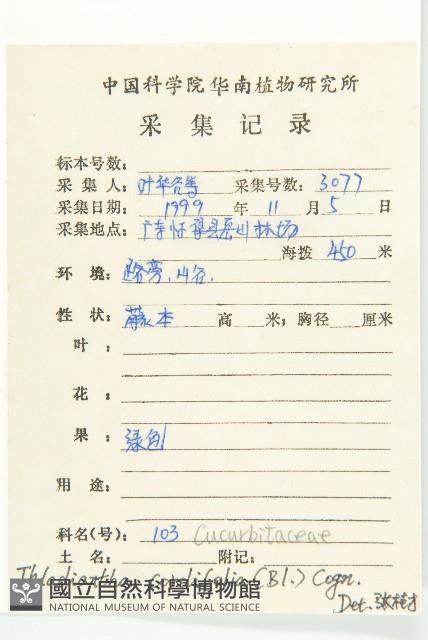 中国科学院华南植物研究所
采集记录
标本号数:
采集人: 叶华谷等 采集号数: 3077
采集日期: 1999 年 11 月 5 日
采集地点: 广东怀集县 林场
海拨 450 米
环境: 路旁, 山谷.
性状: 藤本 高 米; 胸径 厘米
叶:
花:
果: 绿色
用途:
科名(号): 103 Cucurbitaceae
土名: 附记:
Thladiantha cordifolia (Bl.) Cogn.
國立自然科學博物館
NATIONAL MUSEUM OF NATURAL SCIENCE
Det.